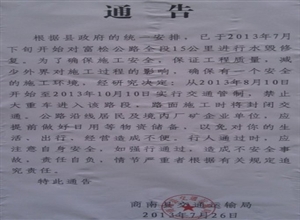 通 告
根据县政府的统一安排，已于2013年7月
下旬开始对富松公路全段15公里进行水毁修
复，为了确保施工安全，保证工程质量，减
少外界对施工过程的影响，确保有一个安全
的施工环境。经研究决定：从2013年8月10日
开始至2013年10月10日实行交通管制，禁止
大重车进入该路段。路面施工时将封闭交
通。公路沿线居民及境内厂矿企业单位，应
提前做好日用等物资储备，以免对你的生
活、出行、经营造成不便。行人通过时，应
注意自身安全，如强行通过，造成不安全事
故，责任自负，情节严重者根据有关规定追
究责任。
特此通告
商南县交通运输局
2013年7月26日